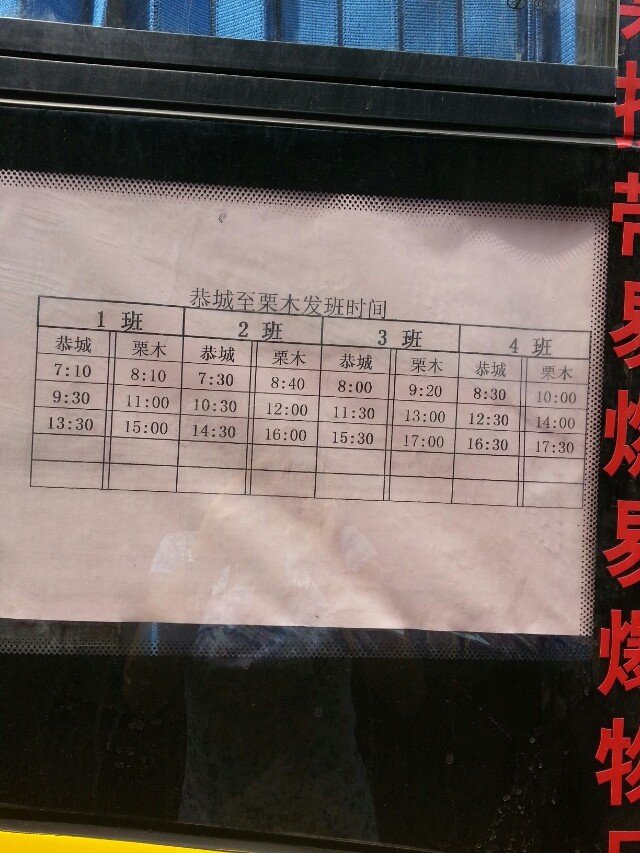 恭城至栗木发班时间
1 班 2 班 3 班 4 班
恭城 栗木 恭城 栗木 恭城 栗木 恭城 栗木
7:10 8:10 7:30 8:40 8:00 9:20 8:30 10:00
9:30 11:00 10:30 12:00 11:30 13:00 12:30 14:00
13:30 15:00 14:30 16:00 15:30 17:00 16:30 17:30
带易燃易爆物